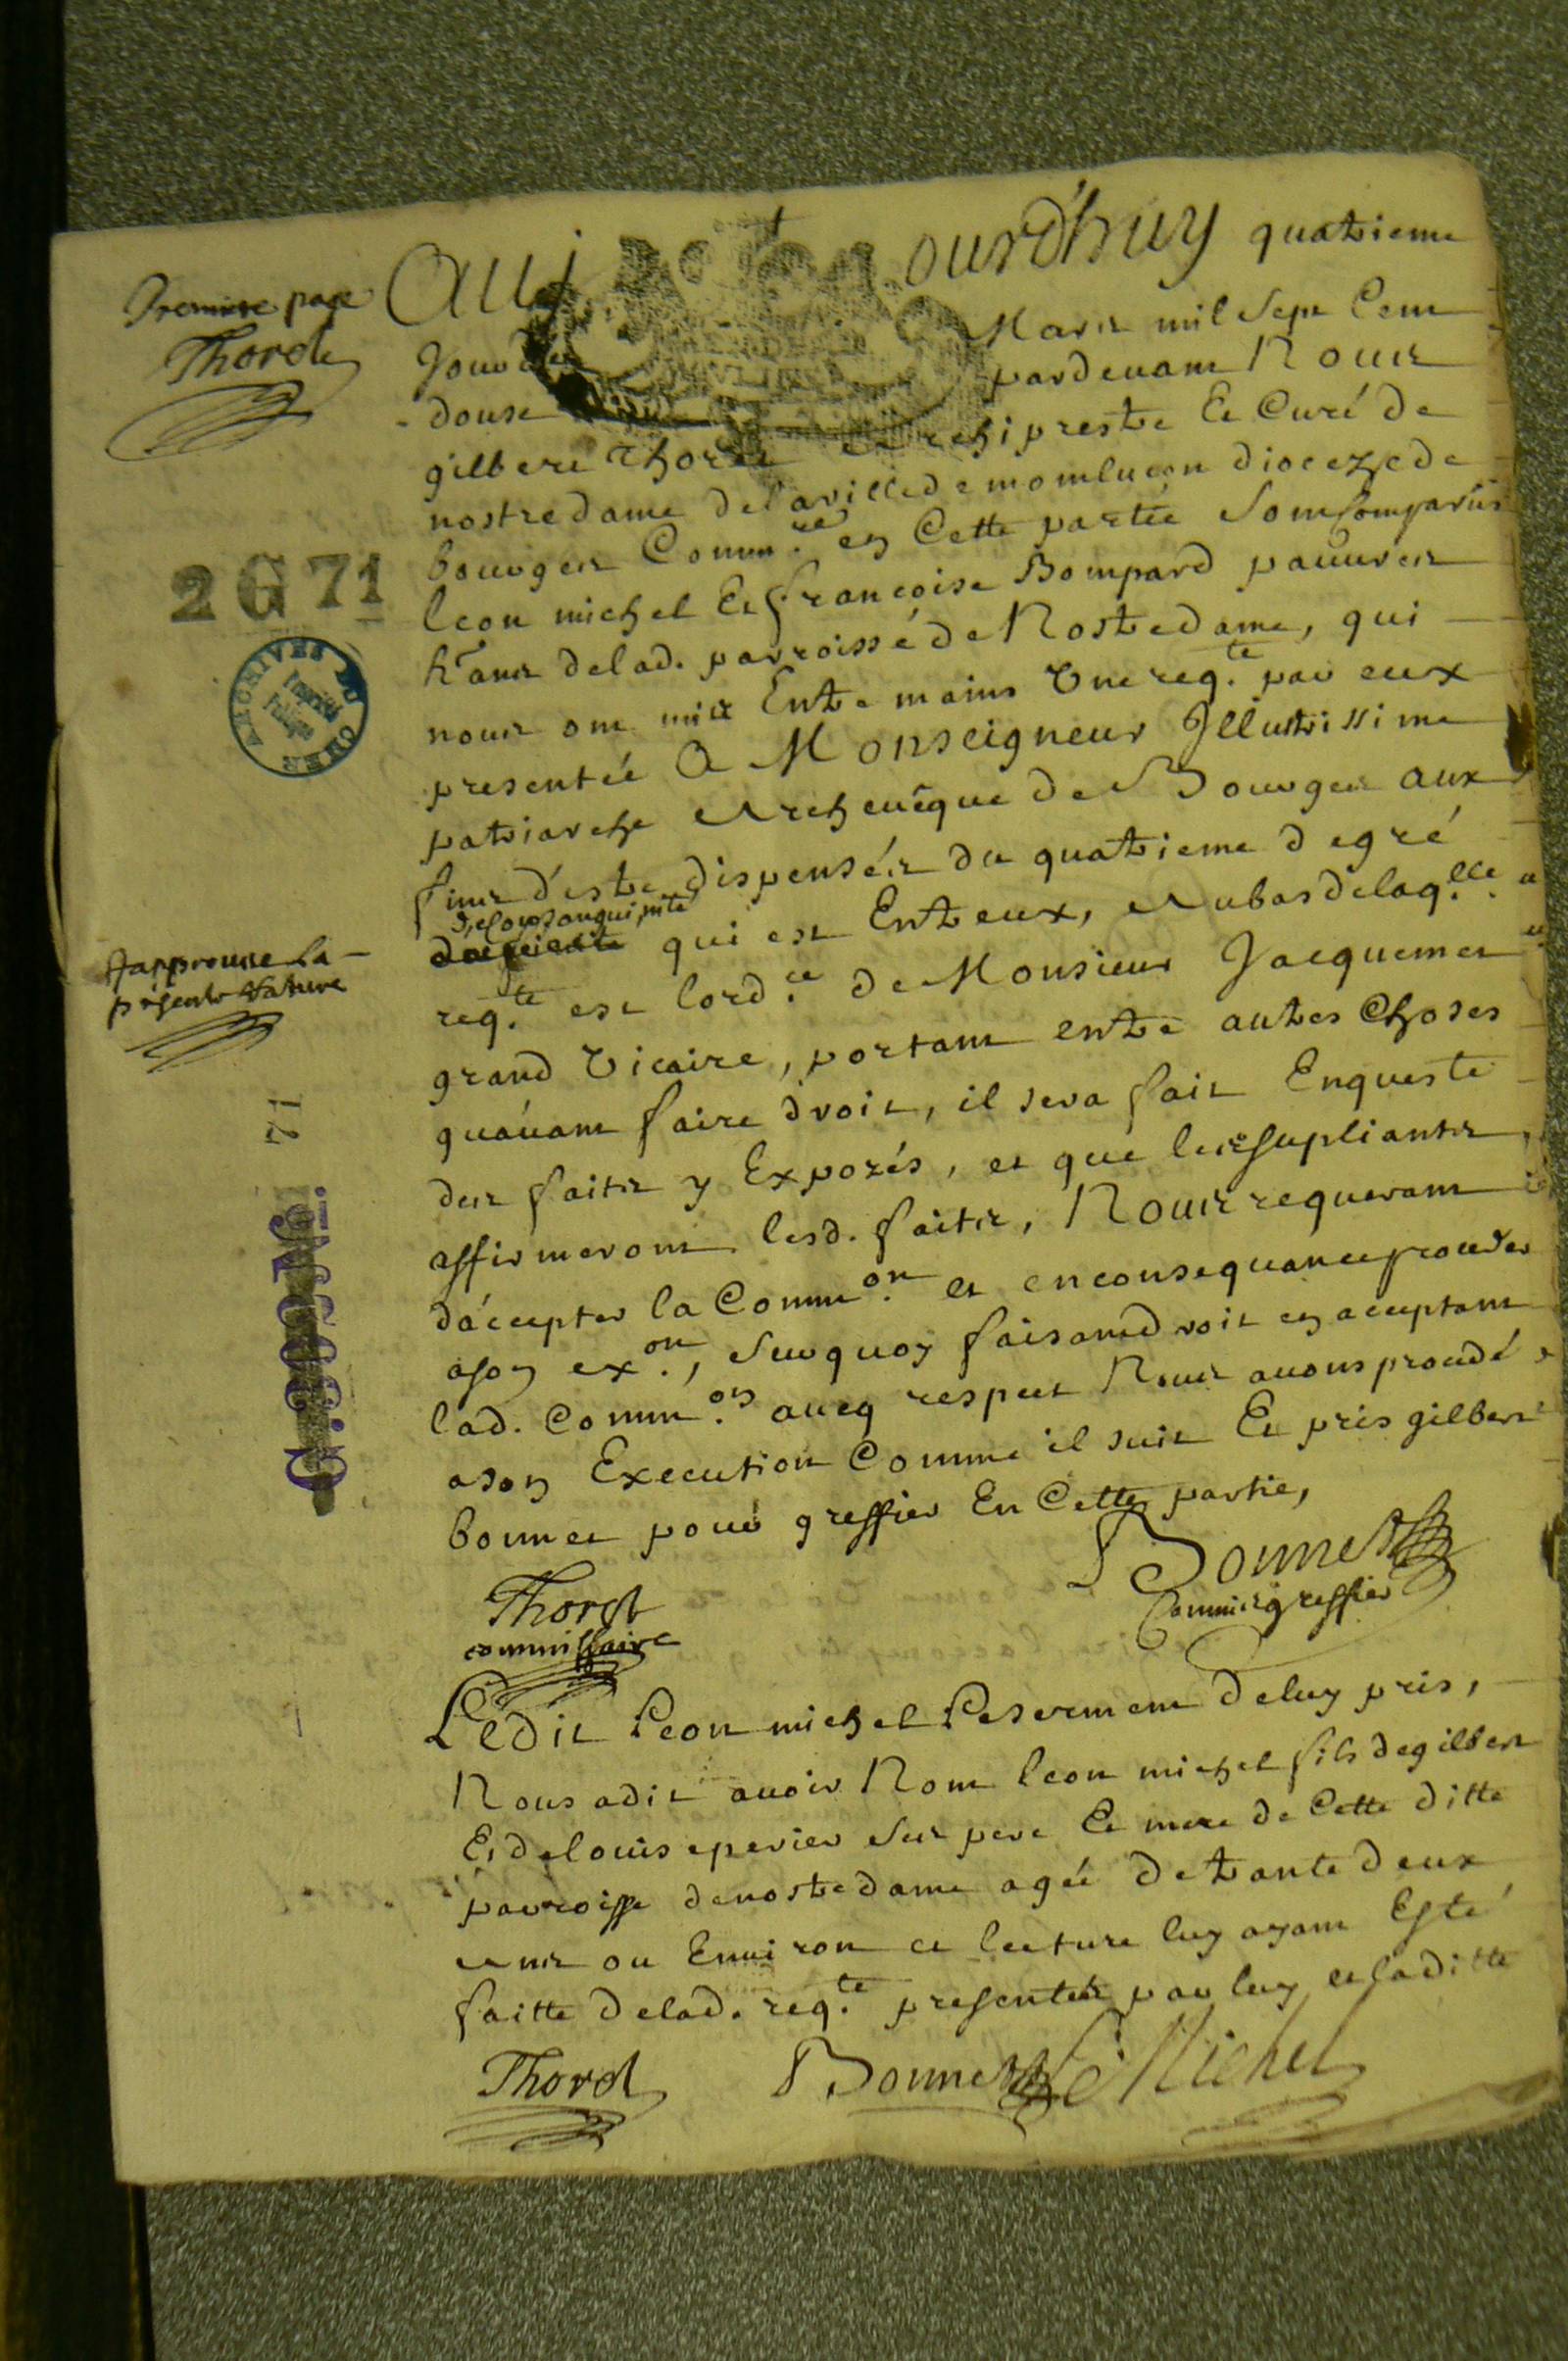 Premiere page
Thorel
Auj ourd'huy quatrieme
Jour de Mars mil sept cent
douse pardevant Nous
gilbert Thorel Archiprestre Et Curé de
nostre dame de la ville de montluçon diocezse de
bourges Comm.re en Cette partie sont Comparus
leon michel Et francoise Bompard pauvres
h~ans de lad. parroisse de Nostre dame, qui
nous ont mis Entre mains Une req.te par eux
presentée A Monseigneur Illustrissime
patriarche Archevêque de Bourges aux
fins d'estre dispensés du quatrieme degré
de consanguinité
qui est Entr eux, Au bas de laq.lle
req.te est lord.ce de Monsieur Jacquemet
grand Vicaire, portant entre autres Choses
qu'avant faire droit, il sera fait Enqueste
des faits y Expozés, et que les supliants
affirmeront lesd. faits, Nous requerant
d'accepter la Comm.on et en consequance proceder
a son ex.on, sur quoy faisant droit en acceptant
lad. Comm.on avecq respect Nous avons procedé
a son Execution Comme il suit Et pris gilbert
bonnet pour greffier En Cette partie,
Japprouve la
présente rature
2 G 71
ARCHIVES DU CHER
71
G.
Thorel
commissaire
Bonnet
Commis greffier
Ledit Leon michel Le serment de luy pris,
Nous a dit avoir Nom leon michel fils de gilbert
Et de louise perier ses pere Et mere de Cette ditte
parroisse de nostre dame agé de trante deux
Ans ou Environ et lecture luy ayant Esté
faitte de lad. req.te presentée par luy et laditte
Thorel Bonnet L Michel